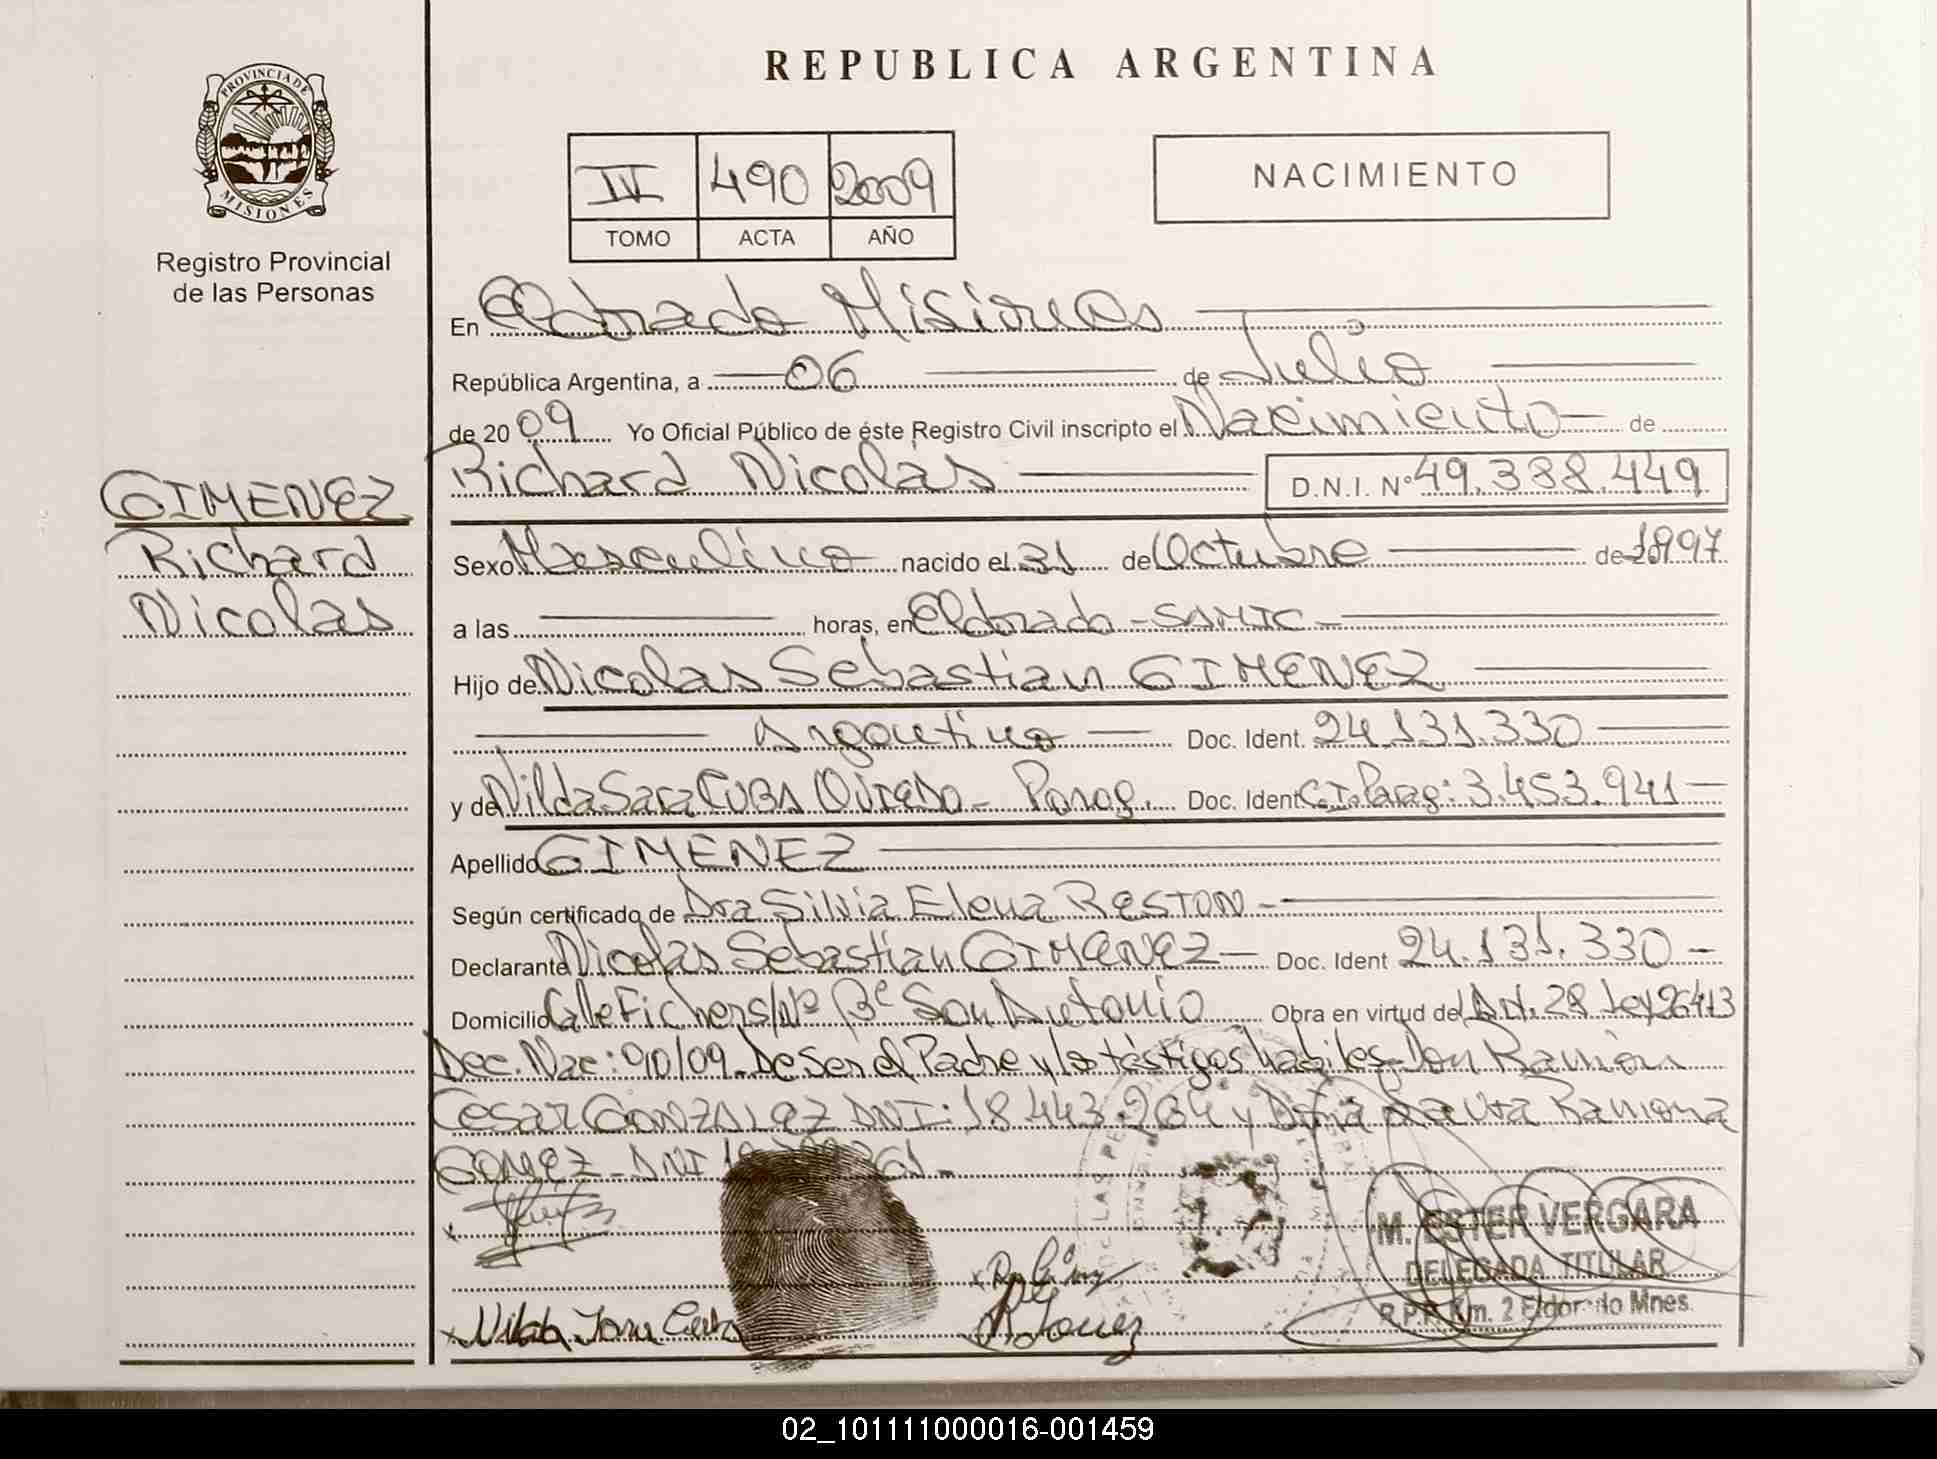 PROVINCIA DE
MISIONES
Registro Provincial
de las Personas
GIMENEZ
Richard
Nicolas
REPUBLICA ARGENTINA
IV 490 2009
TOMO ACTA AÑO
NACIMIENTO
En Eldorado Misiones
República Argentina, a 06 de Julio
de 2009 Yo Oficial Público de éste Registro Civil inscripto el Nacimiento de
Richard Nicolás D.N.I. Nº 49.388.449
Sexo Masculino nacido el 31 de Octubre de 1997
a las horas, en Eldorado - SAMIC -
Hijo de Nicolas Sebastian GIMENEZ
Argentino Doc. Ident. 24.131.330
y de Nilda Sara CUBA OVIEDO - Parag. Doc. Ident C.I. Parag: 3.453.941
Apellido GIMENEZ
Según certificado de Dra Silvia Elena RESTON -
Declarante Nicolas Sebastian GIMENEZ - Doc. Ident 24.131.330 -
Domicilio Calle Ficher s/Nº Bº San Antonio Obra en virtud del Art. 28 Ley 26413
Dec. Nac: 90/09. De Ser el Padre y los testigos habiles Don Ramón
Cesar GONZALEZ DNI: 18.443.264 y Doña Laura Ramona
GOMEZ - DNI
Nilda Sara Cuba
M. ESTER VERGARA
DELEGADA TITULAR
R.P.P. Km. 2 Eldorado Mnes.
02_101111000016-001459